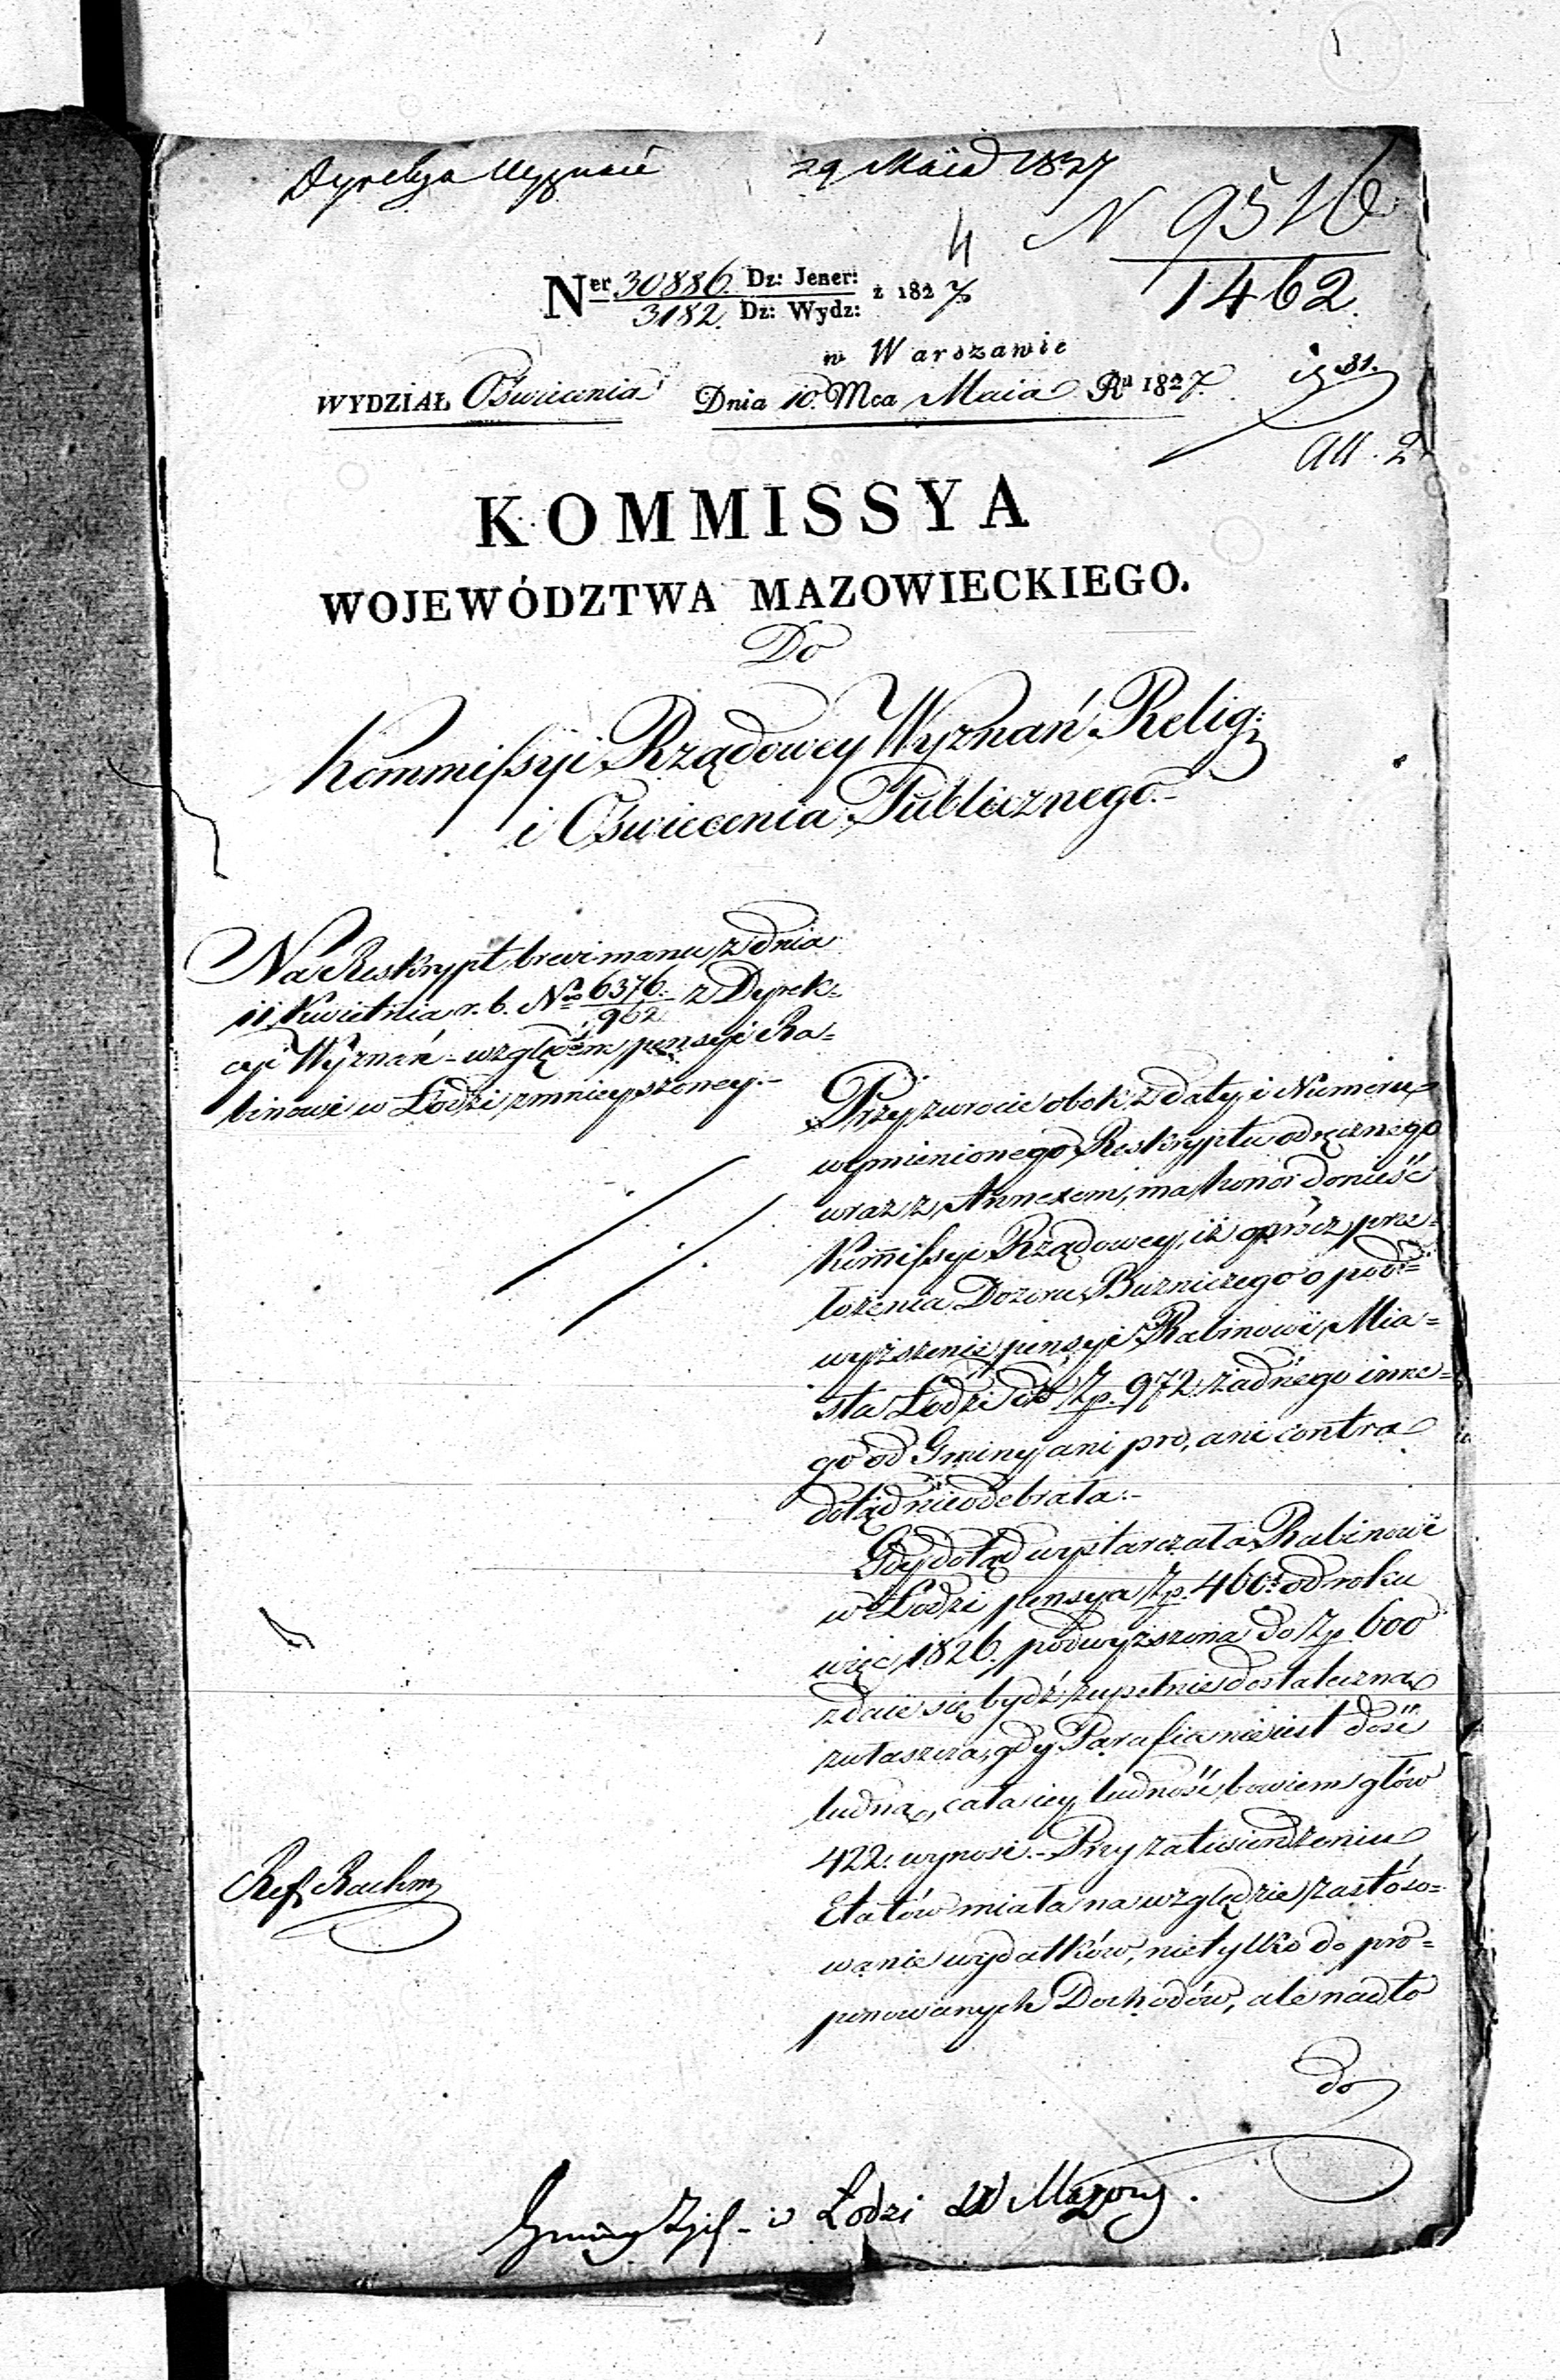 Dyrekcya Wyznań 29 Maia 1827
N 9516
1462.
4
Ner 30886. Dz: Jener: z 1827
3182. Dz: Wydz:
w Warszawie
WYDZIAŁ Oświecenia Dnia 10. Mca Maia Ru 1827.
All. 2
KOMMISSYA
WOJEWÓDZTWA MAZOWIECKIEGO.
Do
Kommissyi Rządowey Wyznań Relig:
i Oświecenia Publicznego.-
Na Reskrypt brevi manu z dnia
11 Kwietnia r. b. No 6376. z Dyrek=
962
cyi Wyznań - względem pensyi Ra=
binowi w Łodzi zmnieyszoney.-
Przy zwrocie obok z daty i Numeru
wymienionego Reskryptu odręcznego
wraz z Annexem, ma honor donieść
Kommissyi Rządowey, iż oprócz prze=
łożenia Dozoru Bużniczego o pod=
wyższenie pensyi Rabinowi Mia=
sta Łodzi do Zp. 972 żadnego inne=
go od Gminy ani pro, ani contra
dotąd nieodebrała.-
Gdy dotąd wystarczała Rabinowi
w Łodzi pensya Zp. 460: od roku
więc 1826. podwyższona do Zp. 600
zdaie się bydź zupełnie dostateczna
zwłaszcza, gdy Parafia nie iest dość
ludna, cała iey ludność bowiem głów
422. wynosi.- Przy zatwierdzeniu
Etatów miała na względzie zastóso=
wanie wydatków, nietylko do pro=
ponowanych Dochodów, ale nadto
do
Ref. Rachm
Gminy Żyd - w Łodzi W Mazow.